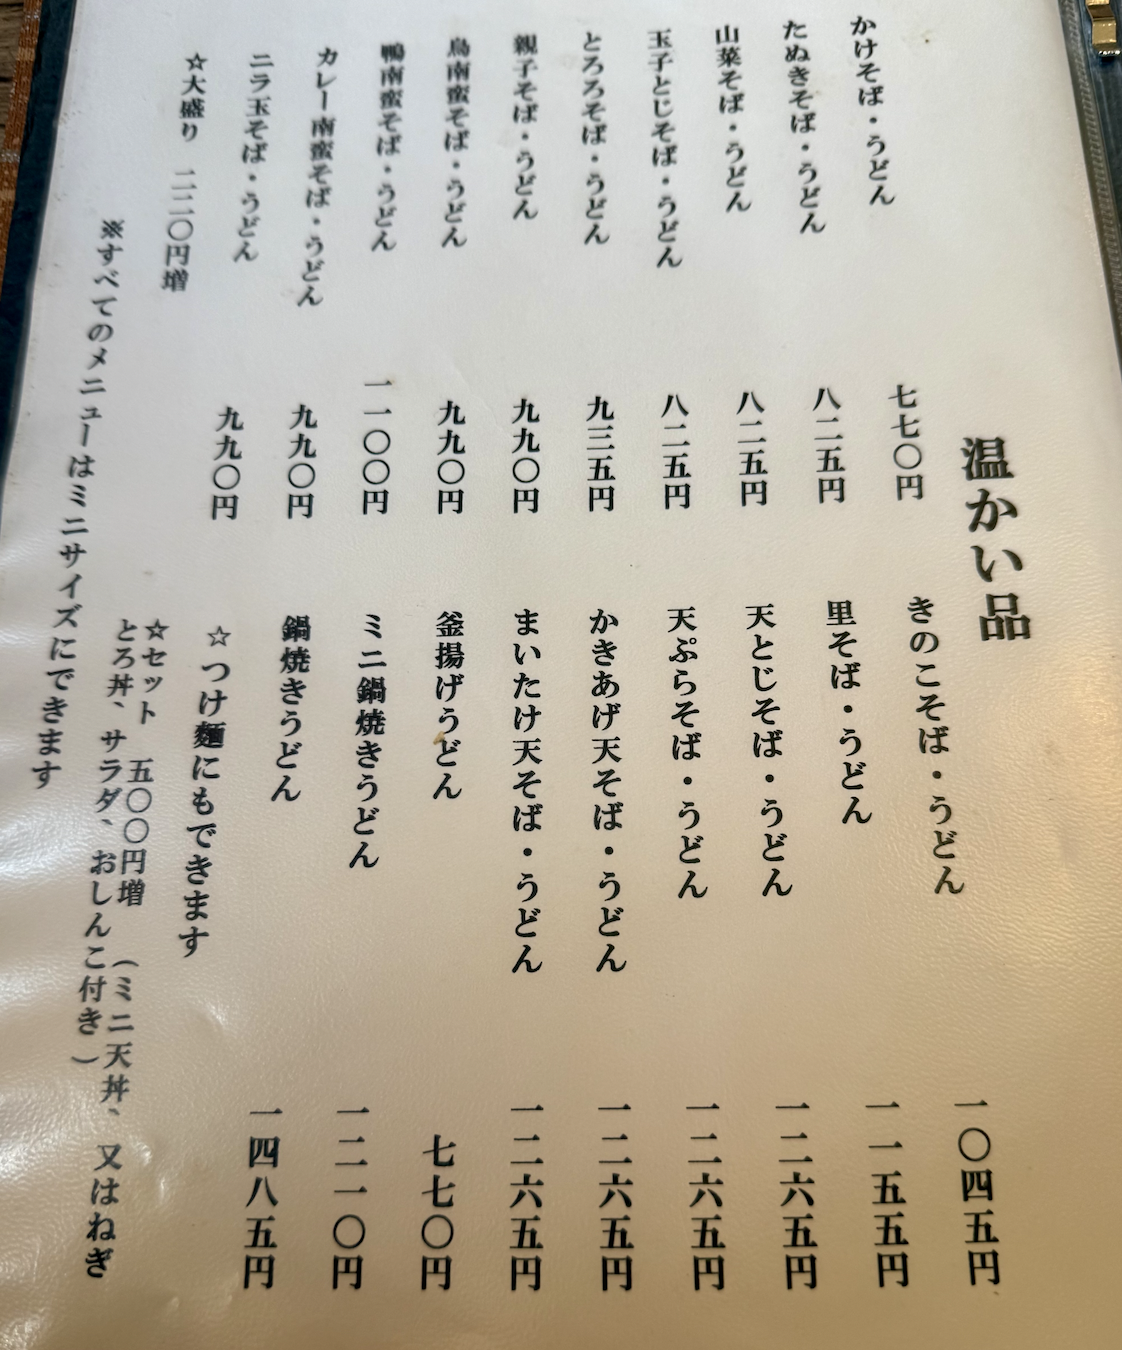 温かい品
かけそば・うどん 七七〇円
たぬきそば・うどん 八二五円
山菜そば・うどん 八二五円
玉子とじそば・うどん 八二五円
とろろそば・うどん 九三五円
親子そば・うどん 九九〇円
鳥南蛮そば・うどん 九九〇円
鴨南蛮そば・うどん 一一〇〇円
カレー南蛮そば・うどん 九九〇円
ニラ玉そば・うどん 九九〇円
☆大盛り 二二〇円増
※すべてのメニューはミニサイズにできます
きのこそば・うどん 一〇四五円
里そば・うどん 一一五五円
天とじそば・うどん 一二六五円
天ぷらそば・うどん 一二六五円
かきあげ天そば・うどん 一二六五円
まいたけ天そば・うどん 一二六五円
釜揚げうどん 七七〇円
ミニ鍋焼きうどん 一二一〇円
鍋焼きうどん 一四八五円
☆つけ麺にもできます
☆セット 五〇〇円増 （ミニ天丼、又はねぎ
とろ丼、サラダ、おしんこ付き）